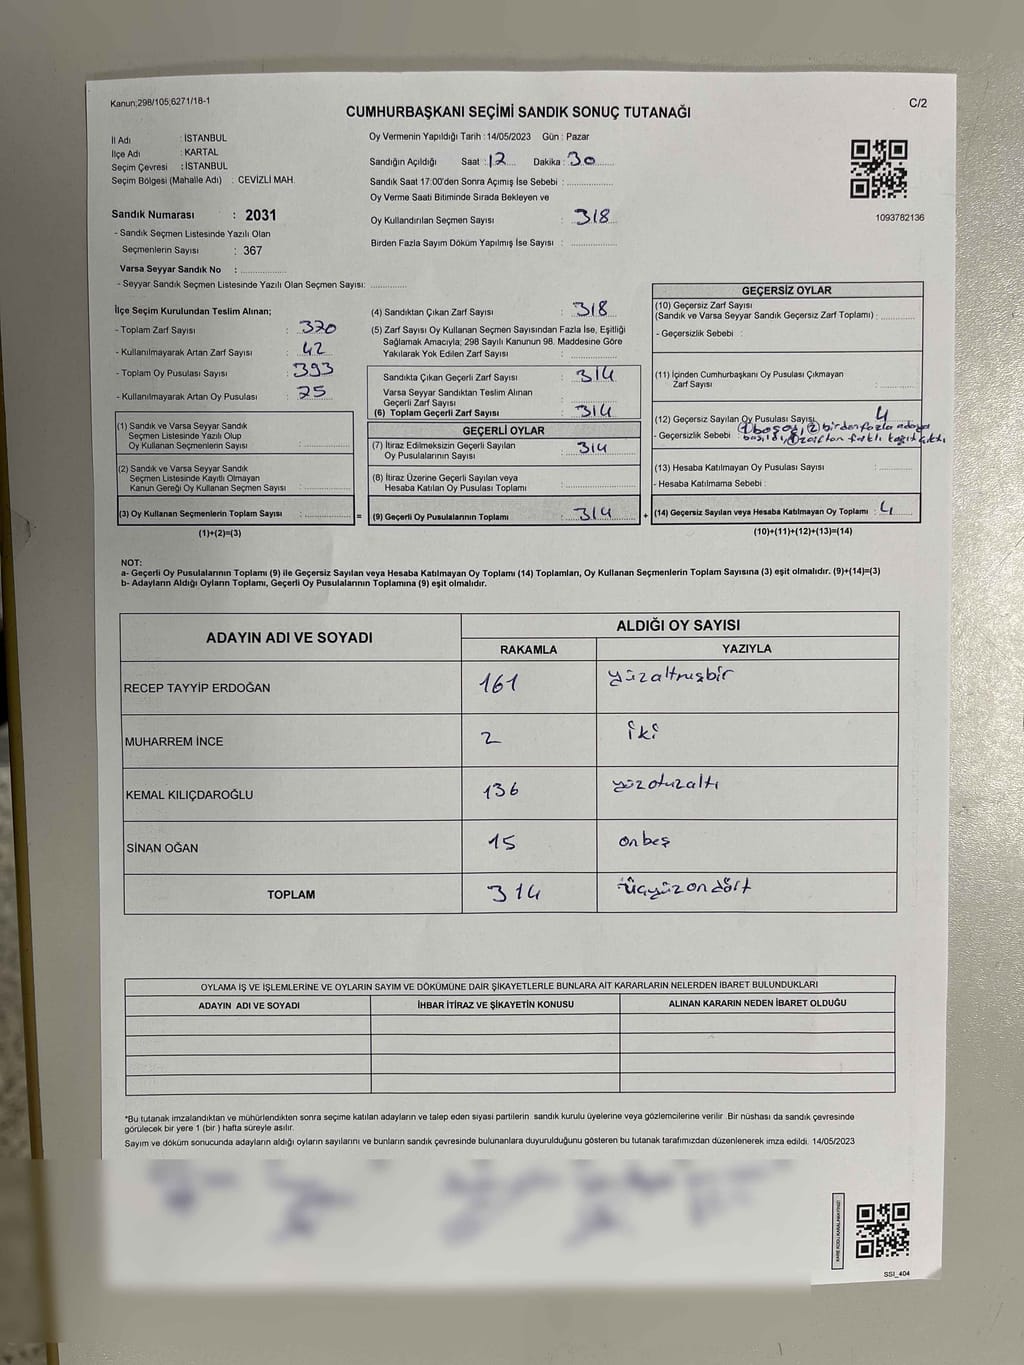 Kanun;298/105;6271/18-1
C/2
CUMHURBAŞKANI SEÇİMİ SANDIK SONUÇ TUTANAĞI
İl Adı : İSTANBUL
İlçe Adı : KARTAL
Seçim Çevresi : İSTANBUL
Seçim Bölgesi (Mahalle Adı) : CEVİZLİ MAH.
Sandık Numarası : 2031
- Sandık Seçmen Listesinde Yazılı Olan
Seçmenlerin Sayısı : 367
Varsa Seyyar Sandık No : ..............
- Seyyar Sandık Seçmen Listesinde Yazılı Olan Seçmen Sayısı: ............
Oy Vermenin Yapıldığı Tarih : 14/05/2023 Gün : Pazar
Sandığın Açıldığı Saat : 12 Dakika : 30
Sandık Saat 17:00'den Sonra Açımış İse Sebebi : ..............
Oy Verme Saati Bitiminde Sırada Bekleyen ve
Oy Kullandırılan Seçmen Sayısı : 318
Birden Fazla Sayım Döküm Yapılmış İse Sayısı : ..............
1093782136
İlçe Seçim Kurulundan Teslim Alınan;
- Toplam Zarf Sayısı : 320
- Kullanılmayarak Artan Zarf Sayısı : 42
- Toplam Oy Pusulası Sayısı : 393
- Kullanılmayarak Artan Oy Pusulası : 25
(1) Sandık ve Varsa Seyyar Sandık
Seçmen Listesinde Yazılı Olup
Oy Kullanan Seçmenlerin Sayısı : ..............
(2) Sandık ve Varsa Seyyar Sandık
Seçmen Listesinde Kayıtlı Olmayan
Kanun Gereği Oy Kullanan Seçmen Sayısı : ..............
(3) Oy Kullanan Seçmenlerin Toplam Sayısı : ..............
(1)+(2)=(3)
(4) Sandıktan Çıkan Zarf Sayısı : 318
(5) Zarf Sayısı Oy Kullanan Seçmen Sayısından Fazla İse, Eşitliği
Sağlamak Amacıyla; 298 Sayılı Kanunun 98. Maddesine Göre
Yakılarak Yok Edilen Zarf Sayısı : ..............
Sandıkta Çıkan Geçerli Zarf Sayısı : 314
Varsa Seyyar Sandıktan Teslim Alınan
Geçerli Zarf Sayısı : ..............
(6) Toplam Geçerli Zarf Sayısı : 314
GEÇERLİ OYLAR
(7) İtiraz Edilmeksizin Geçerli Sayılan
Oy Pusulalarının Sayısı : 314
(8) İtiraz Üzerine Geçerli Sayılan veya
Hesaba Katılan Oy Pusulası Toplamı : ..............
= (9) Geçerli Oy Pusulalarının Toplamı : 314 +
GEÇERSİZ OYLAR
(10) Geçersiz Zarf Sayısı
(Sandık ve Varsa Seyyar Sandık Geçersiz Zarf Toplamı) : ............
- Geçersizlik Sebebi :
(11) İçinden Cumhurbaşkanı Oy Pusulası Çıkmayan
Zarf Sayısı : ............
(12) Geçersiz Sayılan Oy Pusulası Sayısı 4
- Geçersizlik Sebebi : ① boş oy, ② birden fazla adaya
① zarftan farklı kağıt çıktı
(13) Hesaba Katılmayan Oy Pusulası Sayısı : ............
- Hesaba Katılmama Sebebi :
(14) Geçersiz Sayılan veya Hesaba Katılmayan Oy Toplamı : 4
(10)+(11)+(12)+(13)=(14)
NOT:
a- Geçerli Oy Pusulalarının Toplamı (9) ile Geçersiz Sayılan veya Hesaba Katılmayan Oy Toplamı (14) Toplamları, Oy Kullanan Seçmenlerin Toplam Sayısına (3) eşit olmalıdır. (9)+(14)=(3)
b- Adayların Aldığı Oyların Toplamı, Geçerli Oy Pusulalarının Toplamına (9) eşit olmalıdır.
ADAYIN ADI VE SOYADI
ALDIĞI OY SAYISI
RAKAMLA YAZIYLA
RECEP TAYYİP ERDOĞAN 161 yüzaltmışbir
MUHARREM İNCE 2 iki
KEMAL KILIÇDAROĞLU 136 yüzotuzaltı
SİNAN OĞAN 15 onbeş
TOPLAM 314 üçyüzondört
OYLAMA İŞ VE İŞLEMLERİNE VE OYLARIN SAYIM VE DÖKÜMÜNE DAİR ŞİKAYETLERLE BUNLARA AİT KARARLARIN NELERDEN İBARET BULUNDUKLARI
ADAYIN ADI VE SOYADI İHBAR İTİRAZ VE ŞİKAYETİN KONUSU ALINAN KARARIN NEDEN İBARET OLDUĞU
*Bu tutanak imzalandıktan ve mühürlendikten sonra seçime katılan adayların ve talep eden siyasi partilerin sandık kurulu üyelerine veya gözlemcilerine verilir. Bir nüshası da sandık çevresinde
görülecek bir yere 1 (bir ) hafta süreyle asılır.
Sayım ve döküm sonucunda adayların aldığı oyların sayılarını ve bunların sandık çevresinde bulunanlara duyurulduğunu gösteren bu tutanak tarafımızdan düzenlenerek imza edildi. 14/05/2023
SSI_404